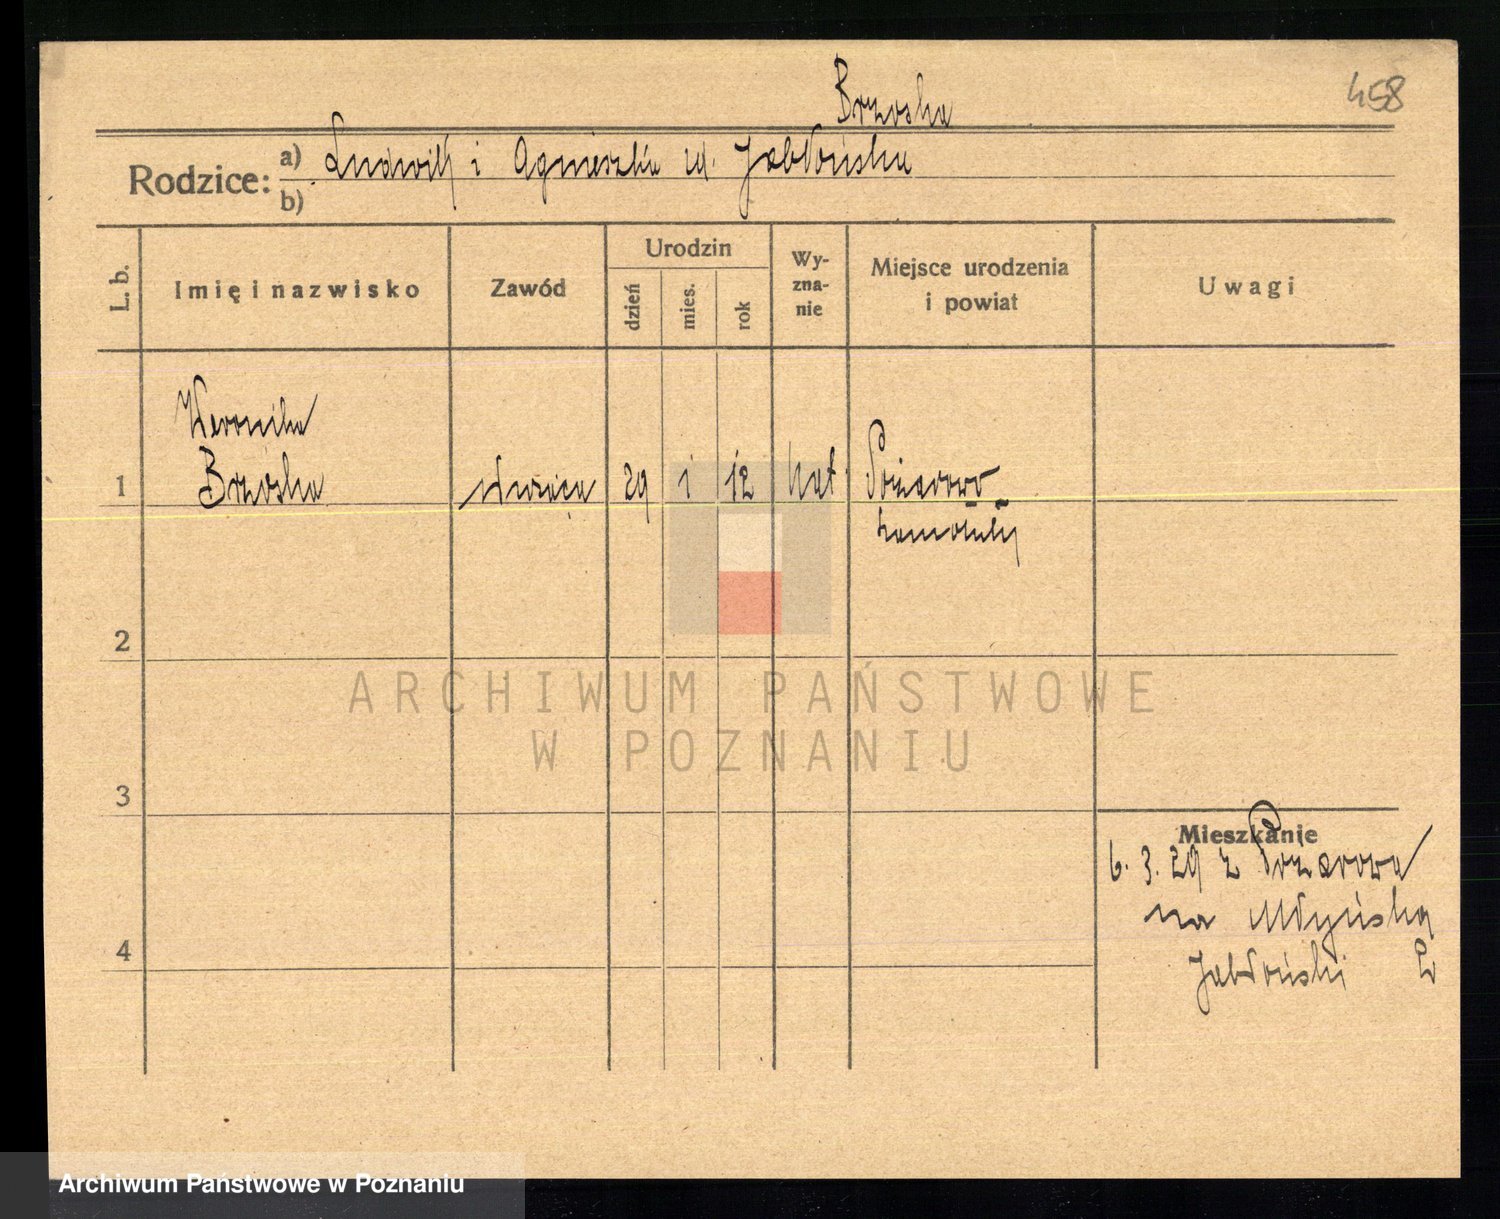 458
Brzoska
Rodzice:
a) Ludwik i Agnieszka ur. Jabłońska
b)
L. b.
Imię i nazwisko
Zawód
Urodzin
dzień
mies.
rok
Wy-
zna-
nie
Miejsce urodzenia
i powiat
Uwagi
Weronika
1 Brzoska służąca 29 1 12 kat Pożarowo
Szamotuły
2
3
4
Mieszkanie
6. 3. 29 z Pożarowa
na Młyńską
Jabłoński
ARCHIWUM PAŃSTWOWE
W POZNANIU
Archiwum Państwowe w Poznaniu